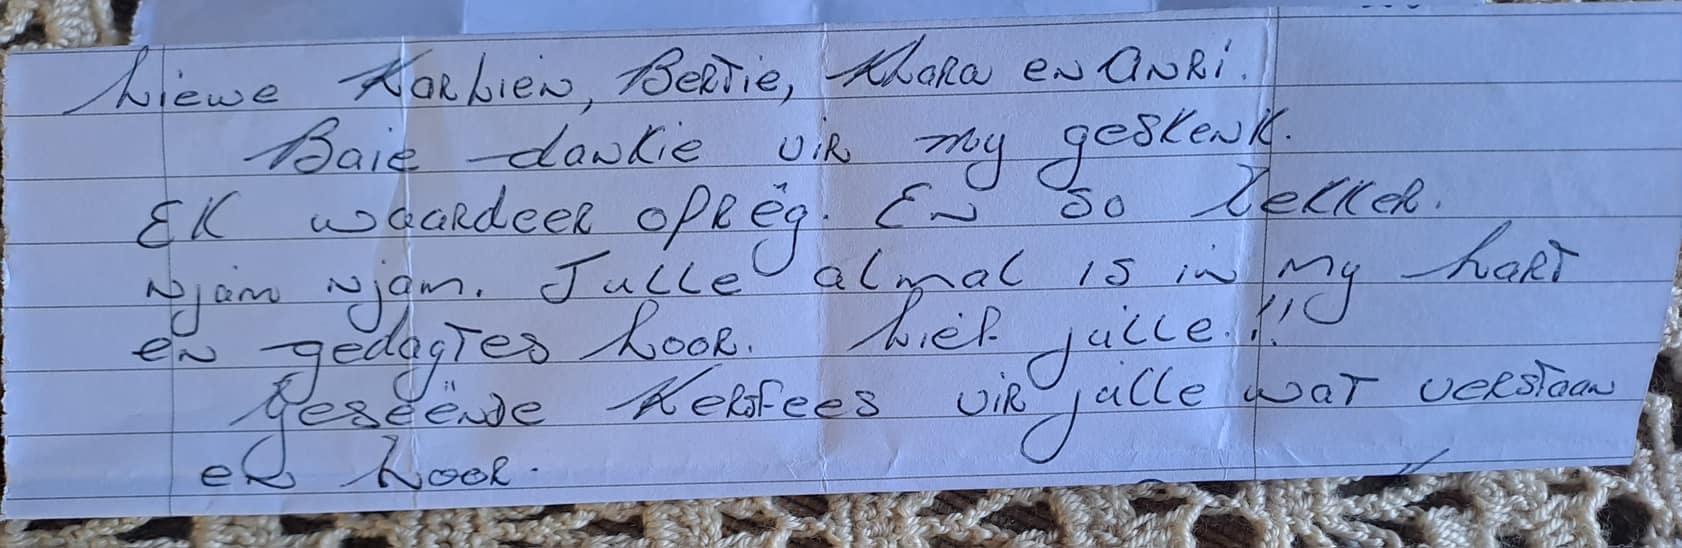 Liewe Karlien, Bertie, Khara en Anri.
Baie dankie vir my geskenk.
Ek waardeer opRêg. En so lekker.
Njam Njam. Julle almal is in my hart
en gedagtes hoor. Lief julle.!!
Geseënde Kersfees vir julle wat verstaan
en hoor.